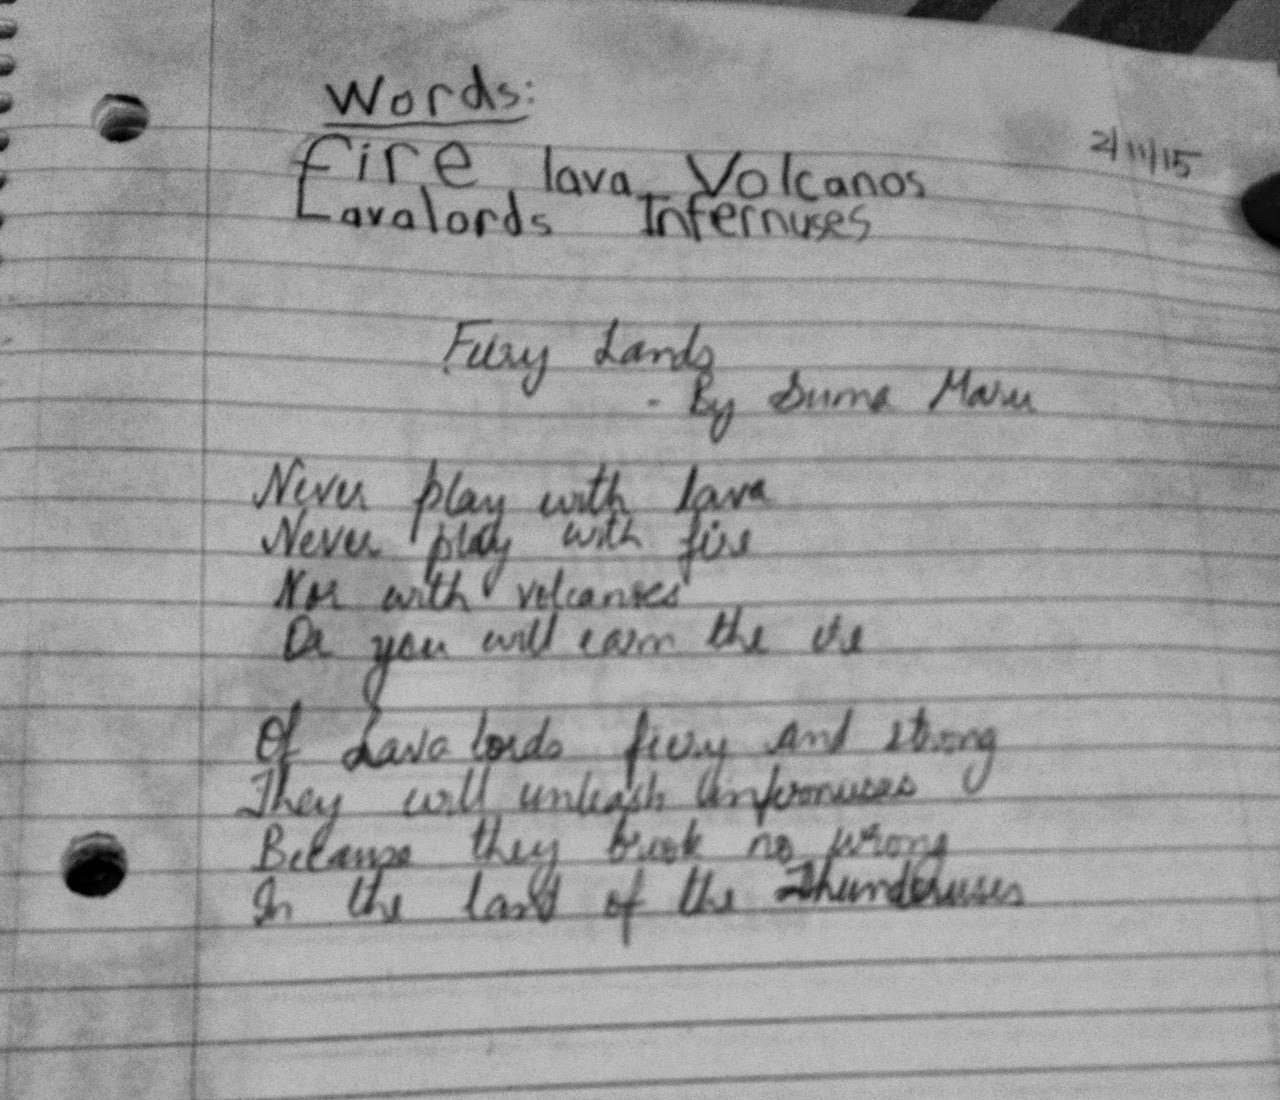 Words:
2/11/15
fire lava Volcanos
Lavalords Infernuses
Fiery Lands
- By Suma
Never play with lava
Never play with fire
Nor with volcanoes
Or you will earn the ire
Of Lava lords fiery and strong
They will unleash infernuses
Because they brook no wrong
In the land of the Thunderuses